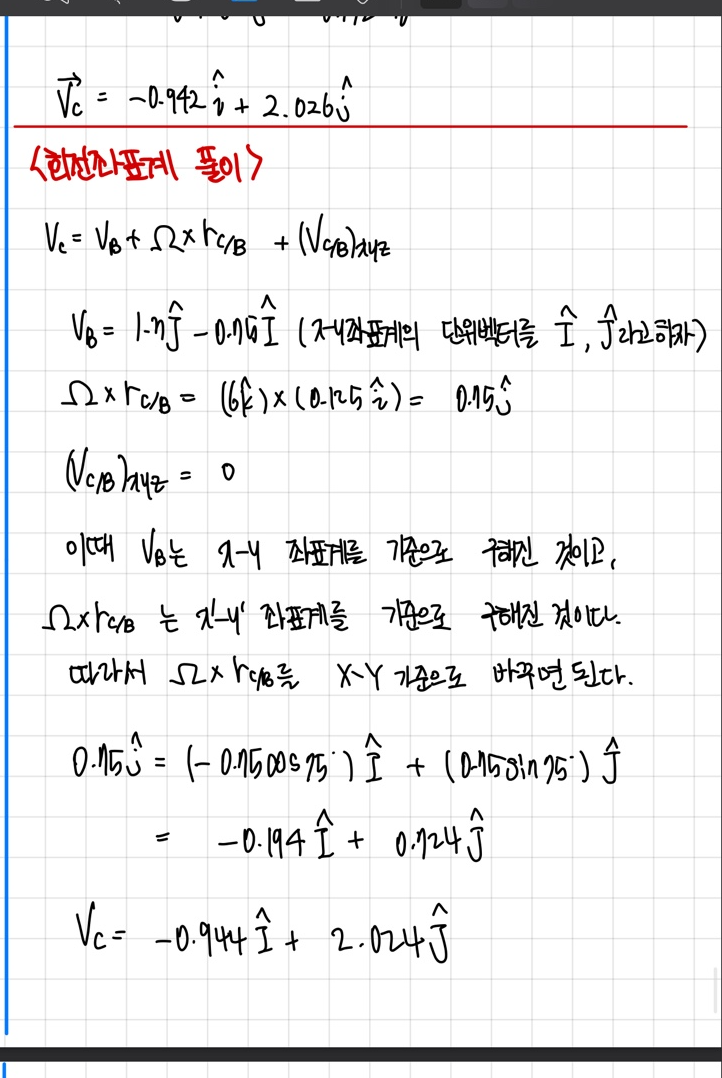 V⃗c = -0.942 î + 2.026 ĵ
<회전좌표계 풀이>
Vc = VB + Ω × rC/B + (VC/B)xyz
VB = 1.3 Ĵ - 0.75 Î (x-y좌표계의 단위벡터를 Î, Ĵ라고하자)
Ω × rC/B = (6k̂) × (0.125 î) = 0.75 ĵ
(VC/B)xyz = 0
이때 VB는 x-y 좌표계를 기준으로 구해진 것이고,
Ω×rC/B 는 x'-y' 좌표계를 기준으로 구해진 것이다.
따라서 Ω × rC/B를 X-Y 기준으로 바꾸면 된다.
0.75 ĵ = (-0.75cos75°) Î + (0.75sin75°) Ĵ
= -0.194 Î + 0.724 Ĵ
Vc = -0.944 Î + 2.024 Ĵ